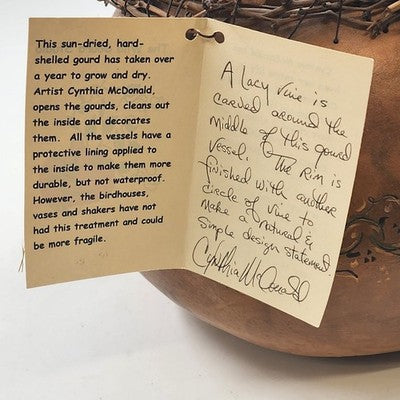 This sun-dried, hard-
shelled gourd has taken over
a year to grow and dry.
Artist Cynthia McDonald,
opens the gourds, cleans out
the inside and decorates
them. All the vessels have a
protective lining applied to
the inside to make them more
durable, but not waterproof.
However, the birdhouses,
vases and shakers have not
had this treatment and could
be more fragile.
A Lacy Vine is
carved around the
middle of this gourd
vessel. The Rim is
finished with another
circle of vine to
make a natural &
simple design statement
Cynthia McDonald